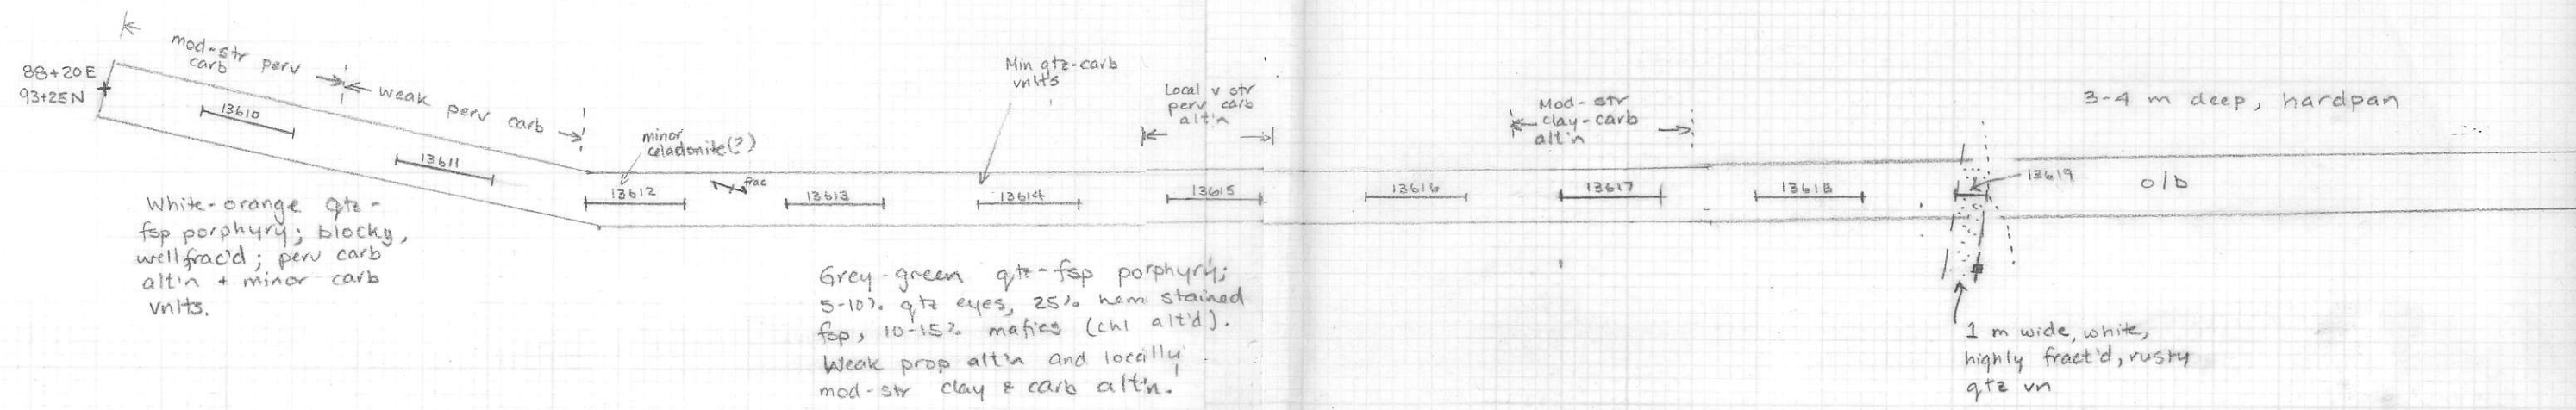 88+20E
93+25N
mod-str perv
carb
weak perv carb
13610
13611
White-orange qtz-
fsp porphyry; blocky,
wellfrac'd; perv carb
alt'n + minor carb
vnlts.
minor
celadonite(?)
13612
frac
13613
Min qtz-carb
vnlts
13614
Local v str
perv carb
alt'n
13615
13616
Grey-green qtz-fsp porphyry;
5-10% qtz eyes, 25% hem stained
fsp, 10-15% mafics (chl alt'd).
Weak prop alt'n and locally
mod-str clay & carb alt'n.
Mod-str
clay-carb
alt'n
13617
13618
13619
3-4 m deep, hardpan
o/b
1 m wide, white,
highly fract'd, rusty
qtz vn